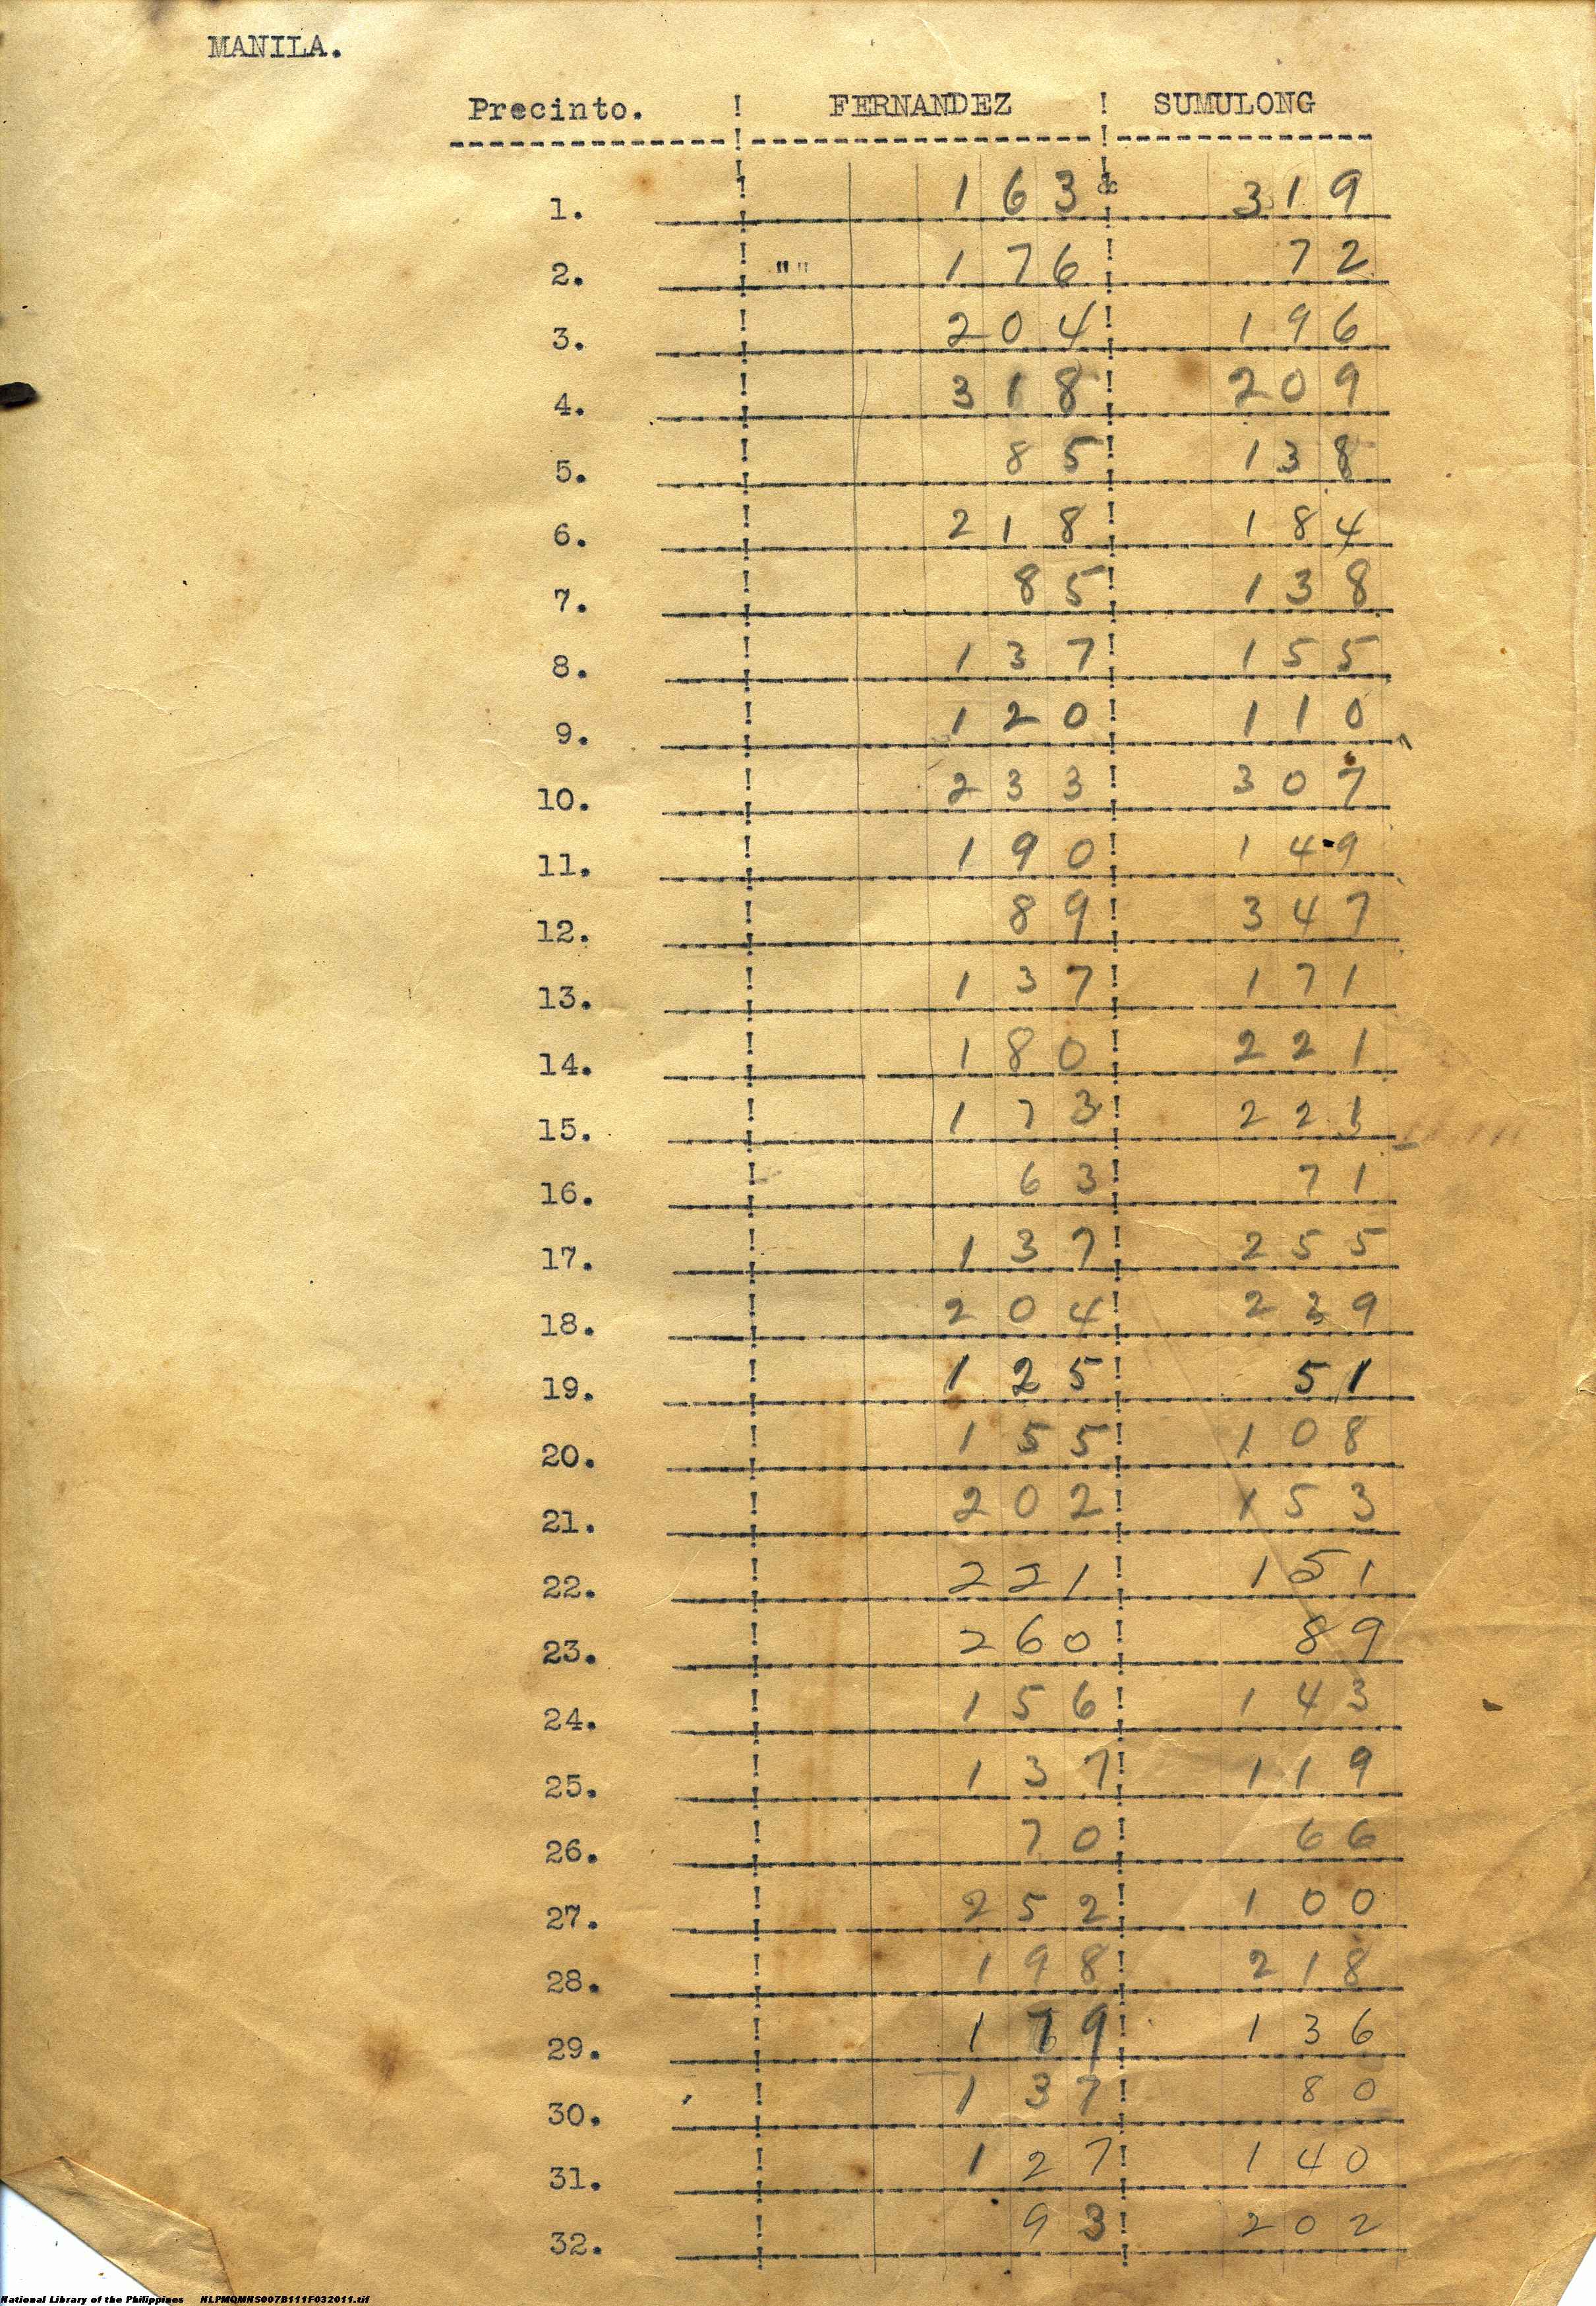 MANILA.
Precinto. ! FERNANDEZ ! SUMULONG
1. 163 319
2. "" 176 72
3. 204 196
4. 318 209
5. 85 138
6. 218 184
7. 85 138
8. 137 155
9. 120 110
10. 233 307
11. 190 149
12. 89 347
13. 137 171
14. 180 221
15. 173 221
16. 63 71
17. 137 255
18. 204 239
19. 125 51
20. 155 108
21. 202 153
22. 221 151
23. 260 89
24. 156 143
25. 137 119
26. 70 66
27. 252 100
28. 198 218
29. 179 136
30. 137 80
31. 127 140
32. 93 202
National Library of the Philippines NLPMQMNS007B111F032011.tif